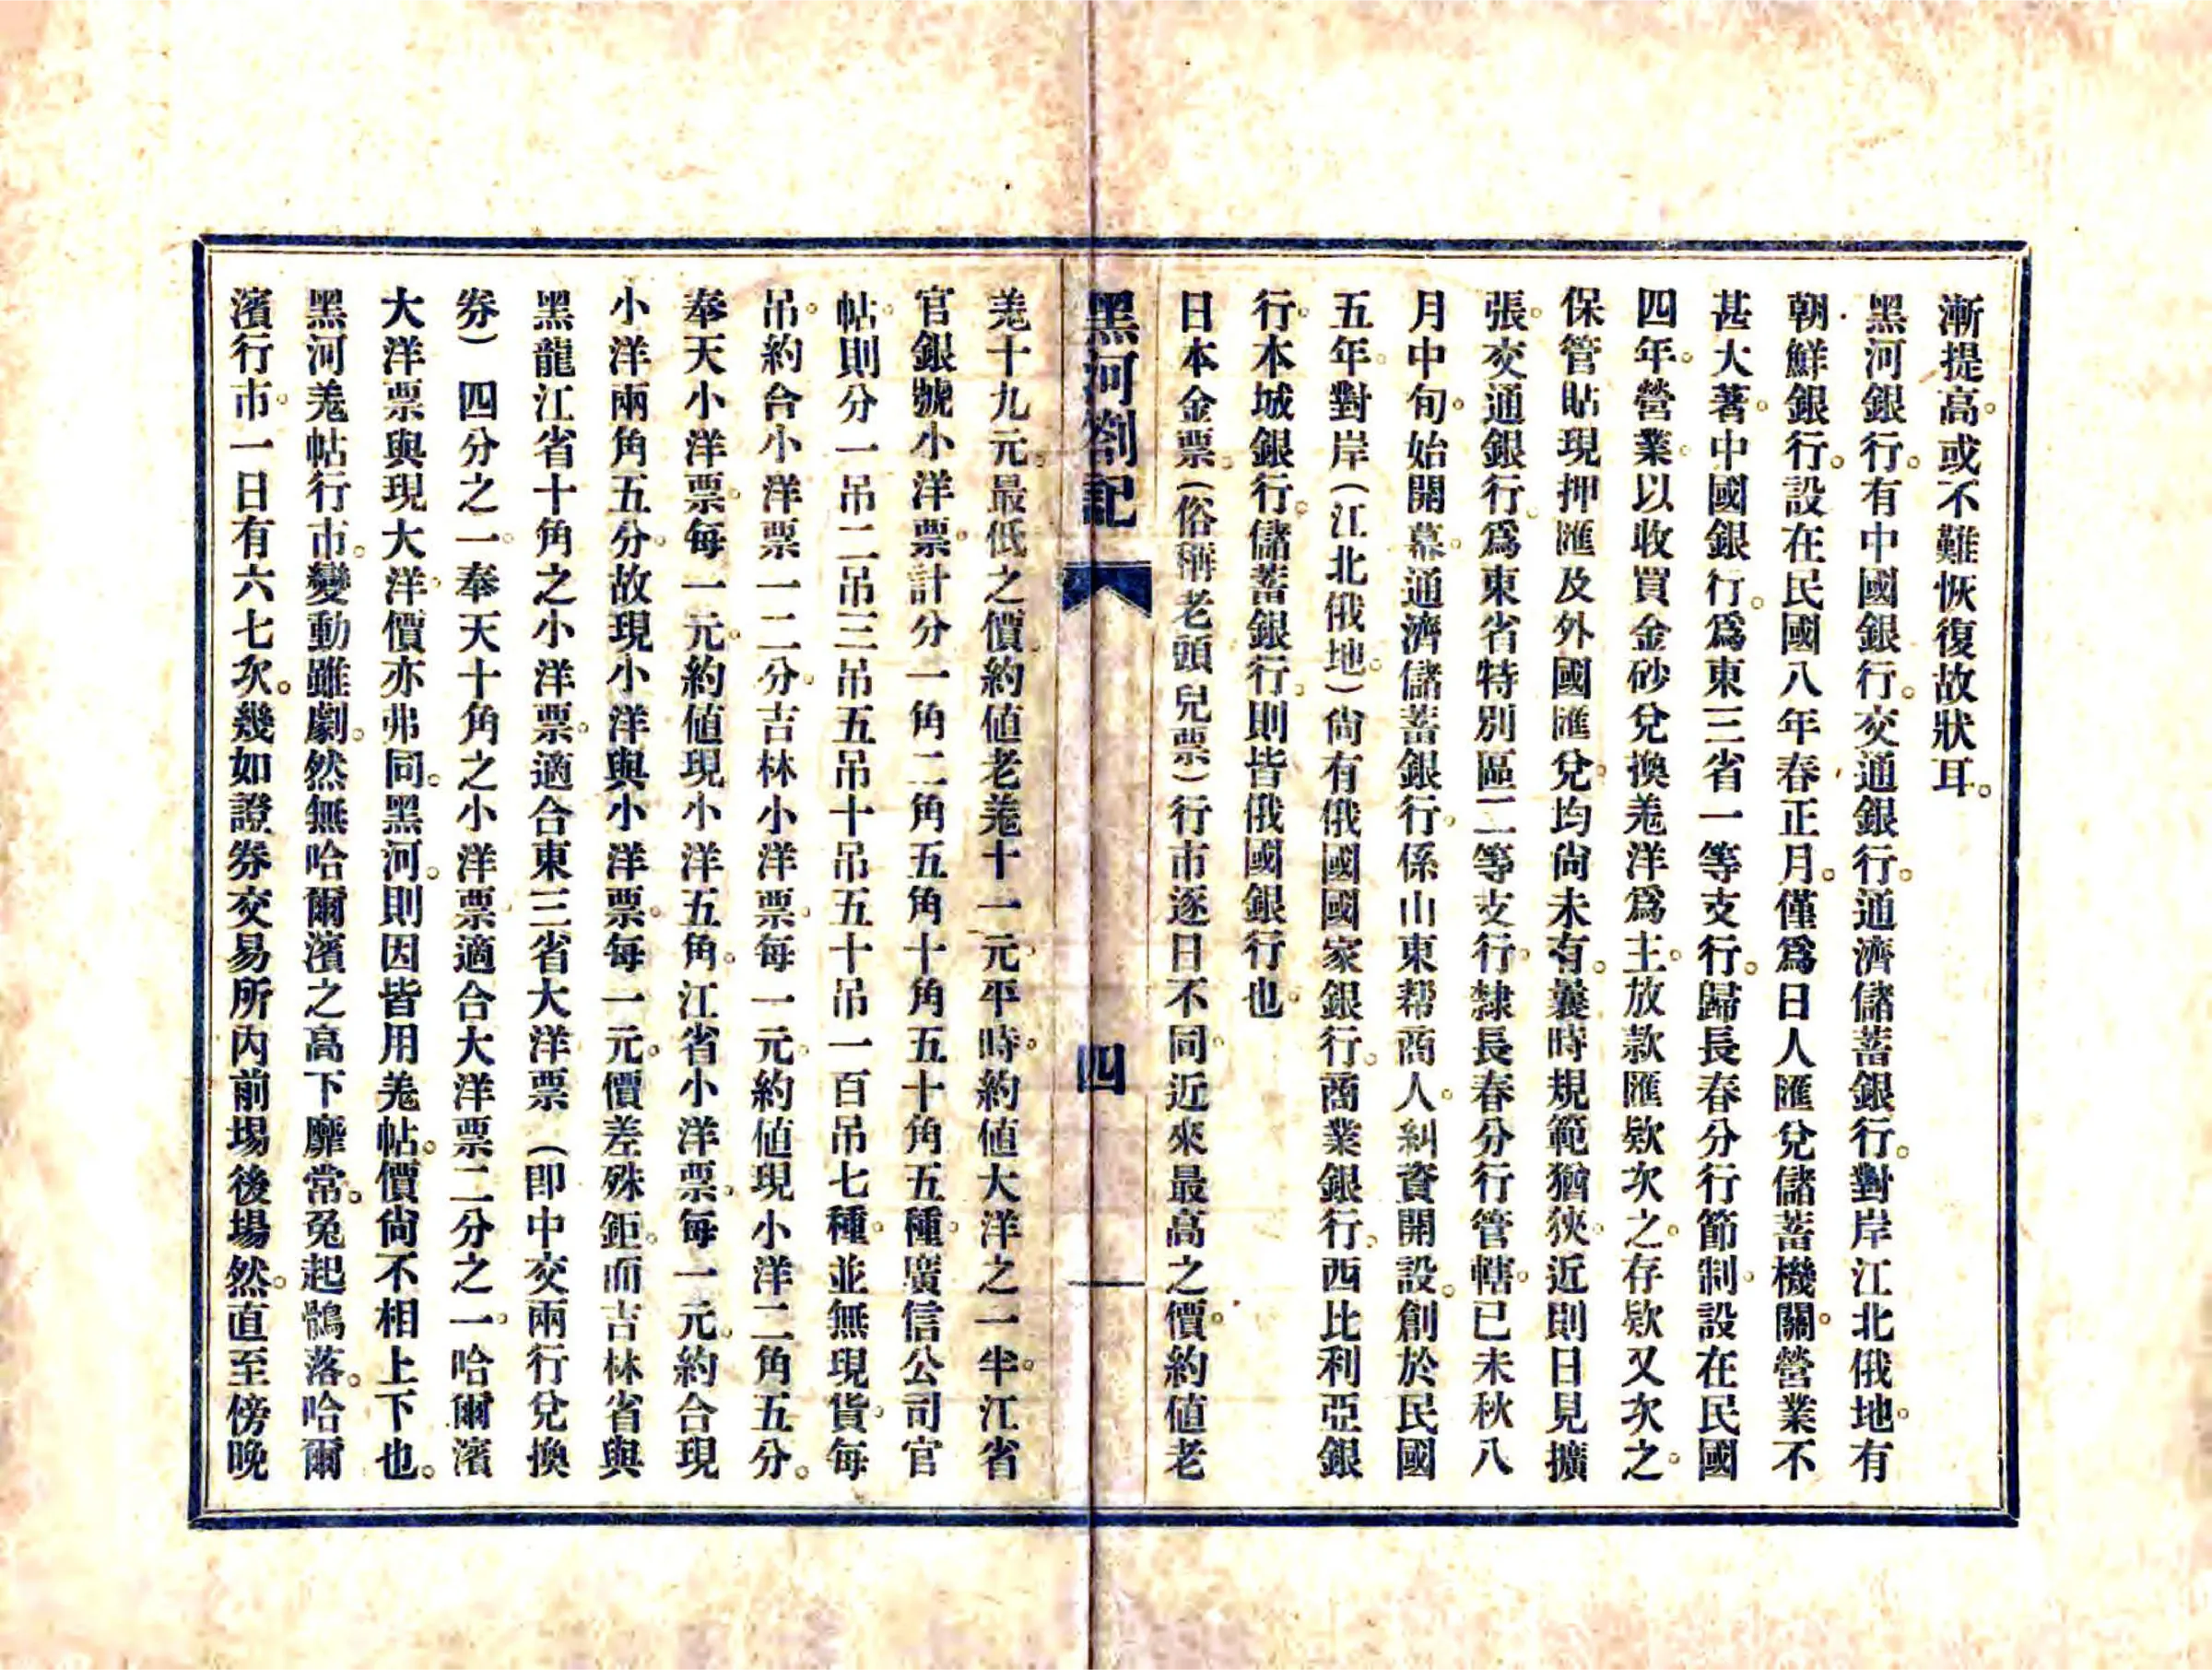 漸提高。或不難恢復故狀耳。
黑河銀行。有中國銀行。交通銀行。通濟儲蓄銀行。對岸江北俄地。有
朝鮮銀行。設在民國八年春正月。僅爲日人匯兌儲蓄機關。營業不
甚大著。中國銀行。爲東三省一等支行。歸長春分行節制。設在民國
四年。營業。以收買金砂兌換羗洋爲主。放款匯欵次之。存欵又次之。
保管貼現押匯及外國匯兌。均尙未有。曩時規範猶狹。近則日見擴
張。交通銀行。爲東省特別區二等支行。隸長春分行管轄。已未秋八
月中旬。始開幕。通濟儲蓄銀行。係山東帮商人。糾資開設。創於民國
五年。對岸(江北俄地。)尙有俄國國家銀行。商業銀行。西比利亞銀
行。本城銀行。儲蓄銀行。則皆俄國銀行也。
日本金票。(俗稱老頭兒票)行市逐日不同。近來最高之價。約值老
黑河劄記 四
羗十九元。最低之價。約值老羗十一元。平時。約値大洋之一半。江省
官銀號小洋票。計分一角二角五角十角五十角五種。廣信公司官
帖。則分一吊二吊三吊五吊十吊五十吊一百吊七種。並無現貨。每
吊。約合小洋票一二分。吉林小洋票。每一元。約値現小洋二角五分。
奉天小洋票。每一元。約値現小洋五角。江省小洋票。每一元。約合現
小洋兩角五分。故現小洋與小洋票。每一元。價差殊鉅。而吉林省與
黑龍江省十角之小洋票。適合東三省大洋票(即中交兩行兌換
券)四分之一。奉天十角之小洋票。適合大洋票二分之一。哈爾濱
大洋票與現大洋。價亦弗同。黑河。則因皆用羗帖。價尙不相上下也。
黑河羗帖行市。變動雖劇。然無哈爾濱之高下靡常。兔起鶻落。哈爾
濱行市。一日有六七次。幾如證券交易所內前場後場然。直至傍晚